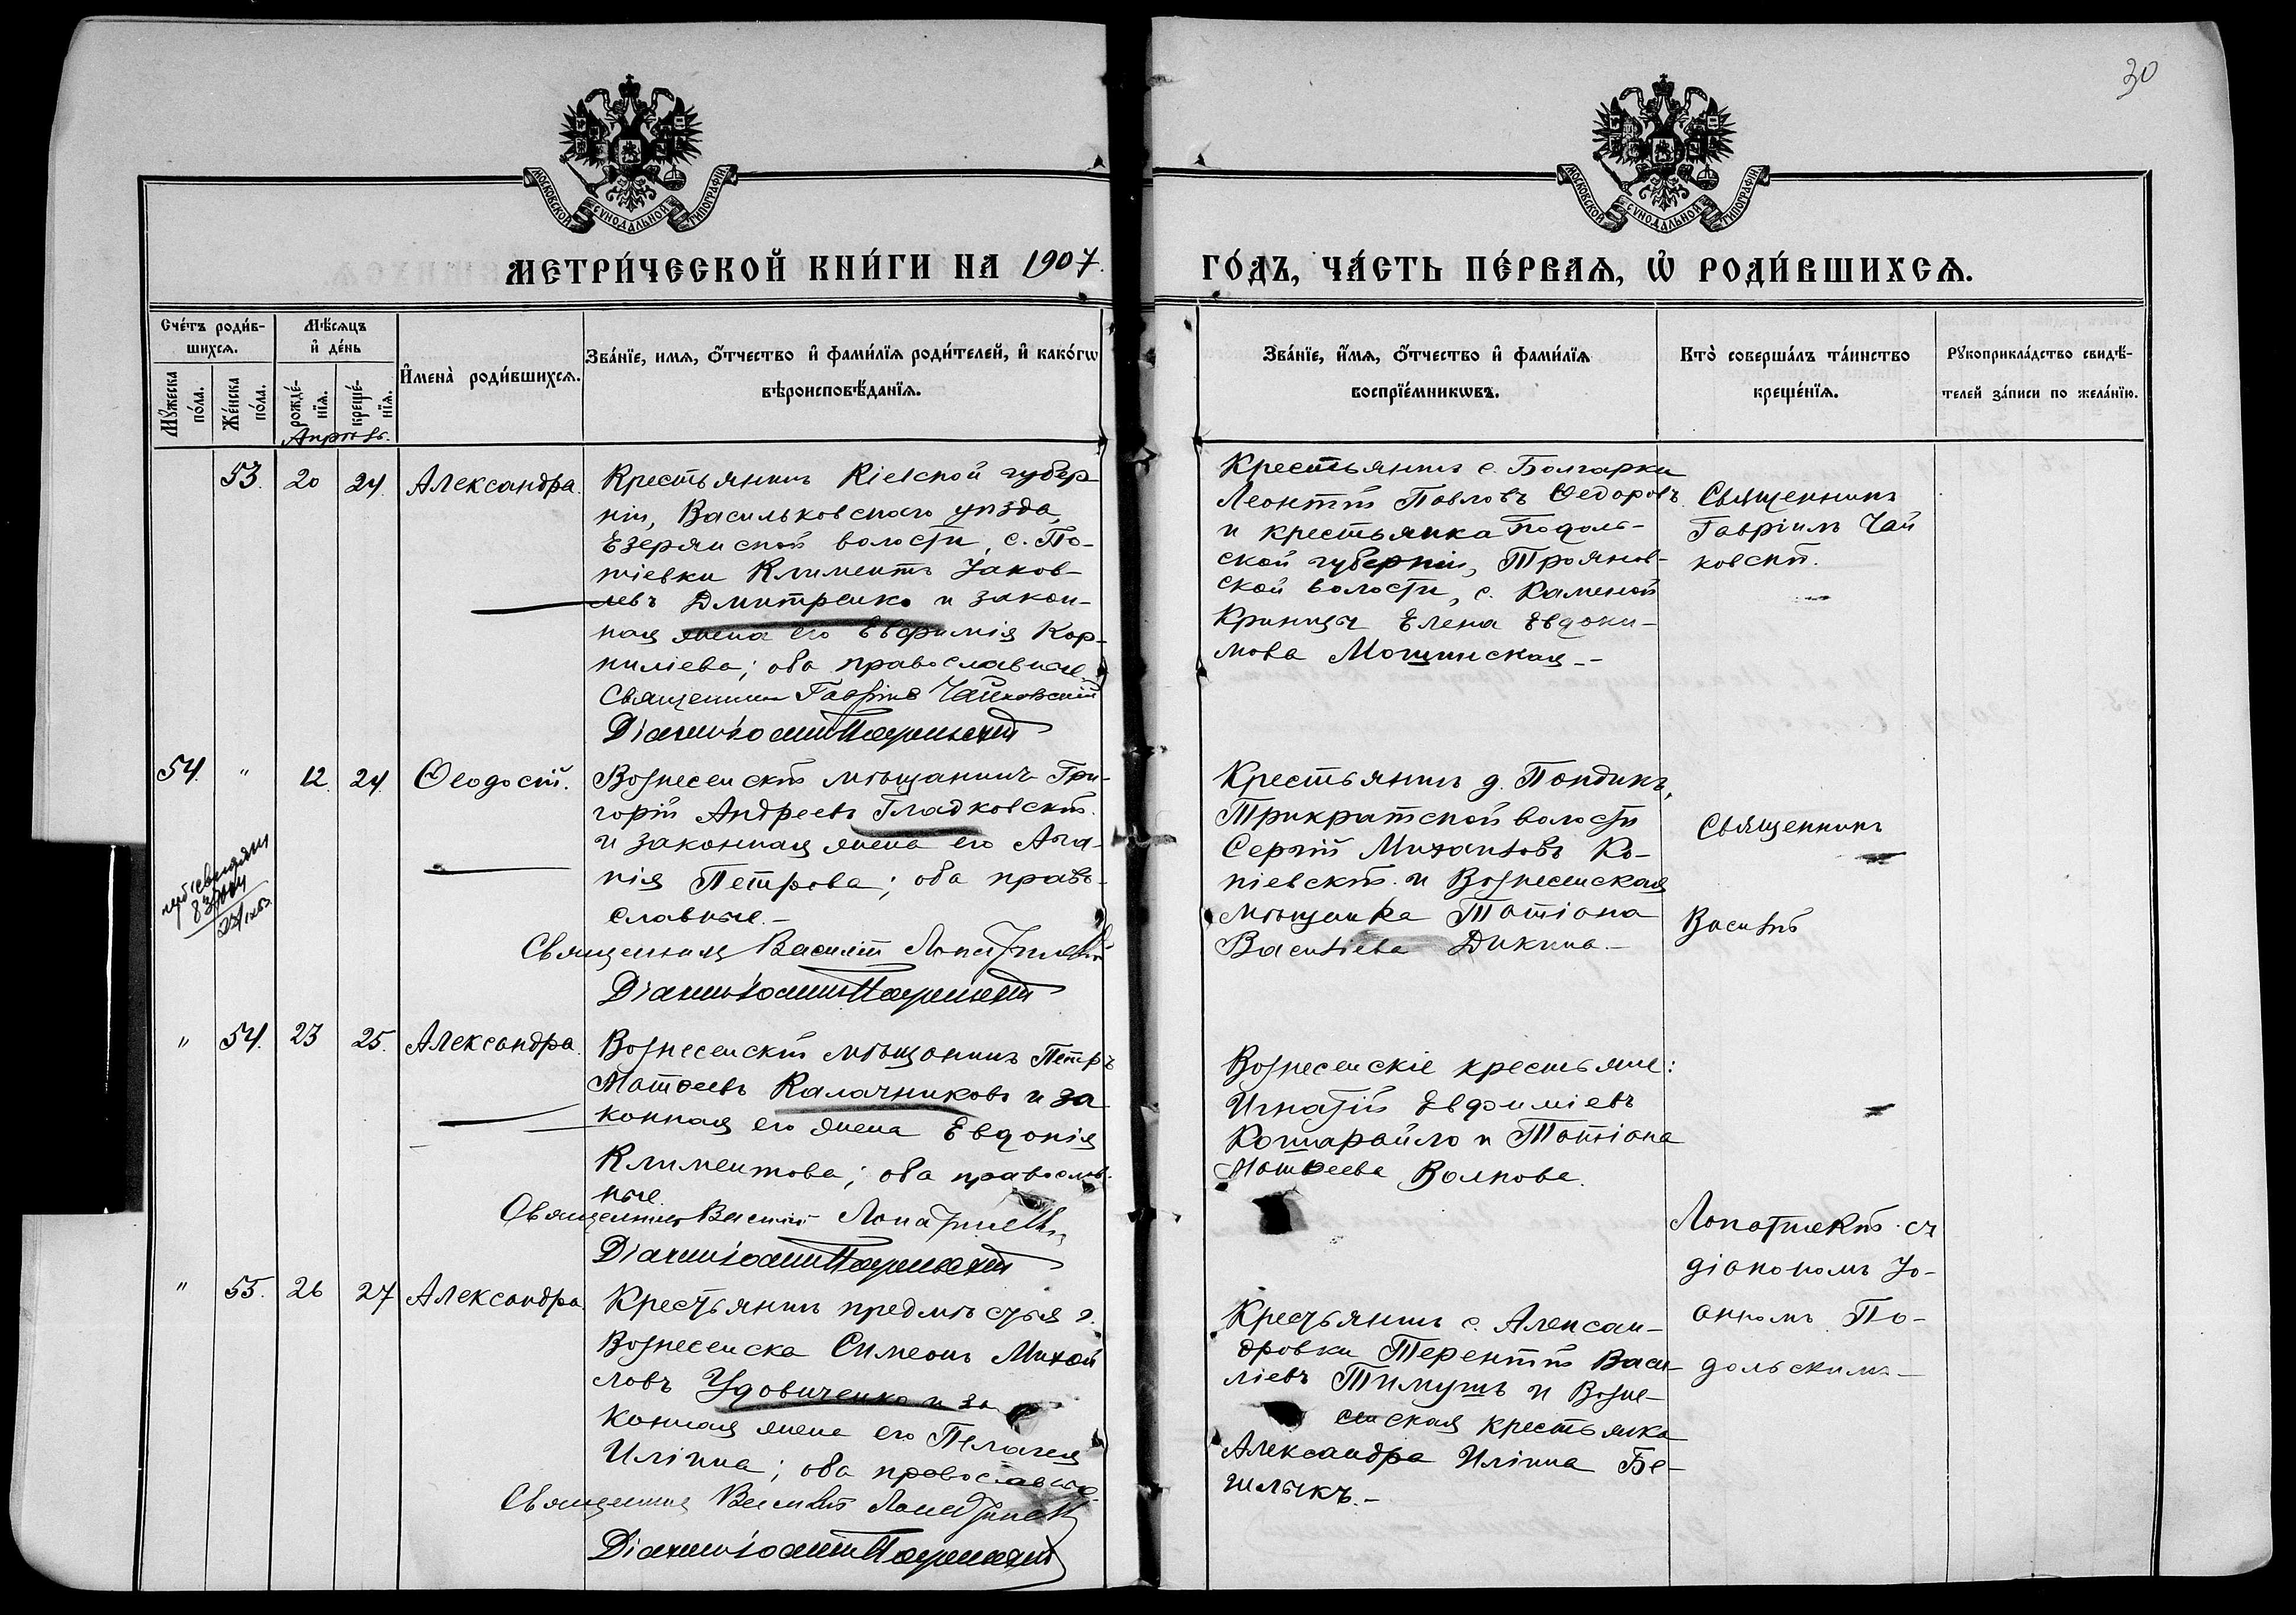 30
МОСКОВСКОЙ СѴНОДАЛЬНОЙ ТИПОГРАФІИ
МОСКОВСКОЙ СѴНОДАЛЬНОЙ ТИПОГРАФІИ
МЕТРИ́ЧЕСКОЙ КНИ́ГИ НА 1907.
ГО́ДЪ, ЧА́СТЬ ПЕ́РВАѦ, Ѡ҆ РОДИ́ВШИХСѦ.
Сче́тъ роди́в-
шихсѧ.
Мꙋ́жеска
по́ла.
Же́нска
по́ла.
Мѣ́сѧцъ
и҆ де́нь
рожде́-
нїѧ.
креще́-
нїѧ.
Апрѣль.
И҆мена̀ роди́вшихсѧ.
Зва́нїе, имѧ, ѻ҆́тчество и҆ фами́лїѧ роди́телей, и҆ како́гѡ
вѣроисповѣ́данїѧ.
Зва́нїе, и҆́мѧ, ѻ҆́тчество и҆ фами́лїѧ
воспрїе́мникѡвъ.
Кто̀ соверша́лъ та́инство
креще́нїѧ.
Рꙋкоприкла́дство свидѣ́-
телей за́писи по жела́нїю.
53. 20 24. Александра.
Крестьянинъ Кіевской губер-
ніи, Васильковскаго уѣзда,
Езерянской волости, с. По-
тіевки Климентъ Іаков-
левъ Дмитренко и закон-
ная жена его Евфимія Кор-
ниліева; оба православные
Священникъ Гавріилъ Чайковскій
Діаконъ Іоаннъ Подольскій
Крестьянинъ с. Болгарки
Леонтій Павловъ Ѳедоровъ
и крестьянка Подоль-
ской губерніи, Троянов-
ской волости, с. Каменой
Криницы Елена Евдоки-
мова Мощинская.-
Священникъ
Гавріилъ Чай
ковскій.
54. " 12. 24. Ѳеодосій.
Вознесенскій мѣщанинъ Гри-
горій Андреевъ Гладковскій
и законная жена его Ага-
пія Петрова; оба право-
славные.-
Священникъ Василій Лопатинскій
Діаконъ Іоаннъ Подольскій
Крестьянинъ д. Пондикъ,
Трикратской волости
Сергій Михаиловъ Ко-
піевскій и Вознесенская
мѣщанка Татіана
Васильева Дикина.-
Священникъ
Василій
" 54. 23 25. Александра.
Вознесенскій мѣщанинъ Петръ
Матѳеевъ Калачниковъ и за
конная его жена Евдокія
Климентова; оба православ-
ные.
Священникъ Василій Лопатинскій
Діаконъ Іоаннъ Подольскій
Вознесенскіе крестьяне:
Игнатій Евфиміевъ
Кошарайло и Татіана
Матѳеева Волкова.
Лопатинскій съ
діакономъ Іо-
анномъ По-
дольскимъ-
" 55. 26 27 Александра
Крестьянинъ предмѣстья г.
Вознесенска Симеонъ Михай
ловъ Удовиченко и за
конная жена его Пелагея
Иліина; оба православные.
Священникъ Василій Лопатинскій
Діаконъ Іоаннъ Подольскій
Крестьянинъ с. Алексан-
дровки Терентій Васи-
ліевъ Тимушъ и Возне-
сенская крестьянка
Александра Иліина Бе-
шлыкъ.-